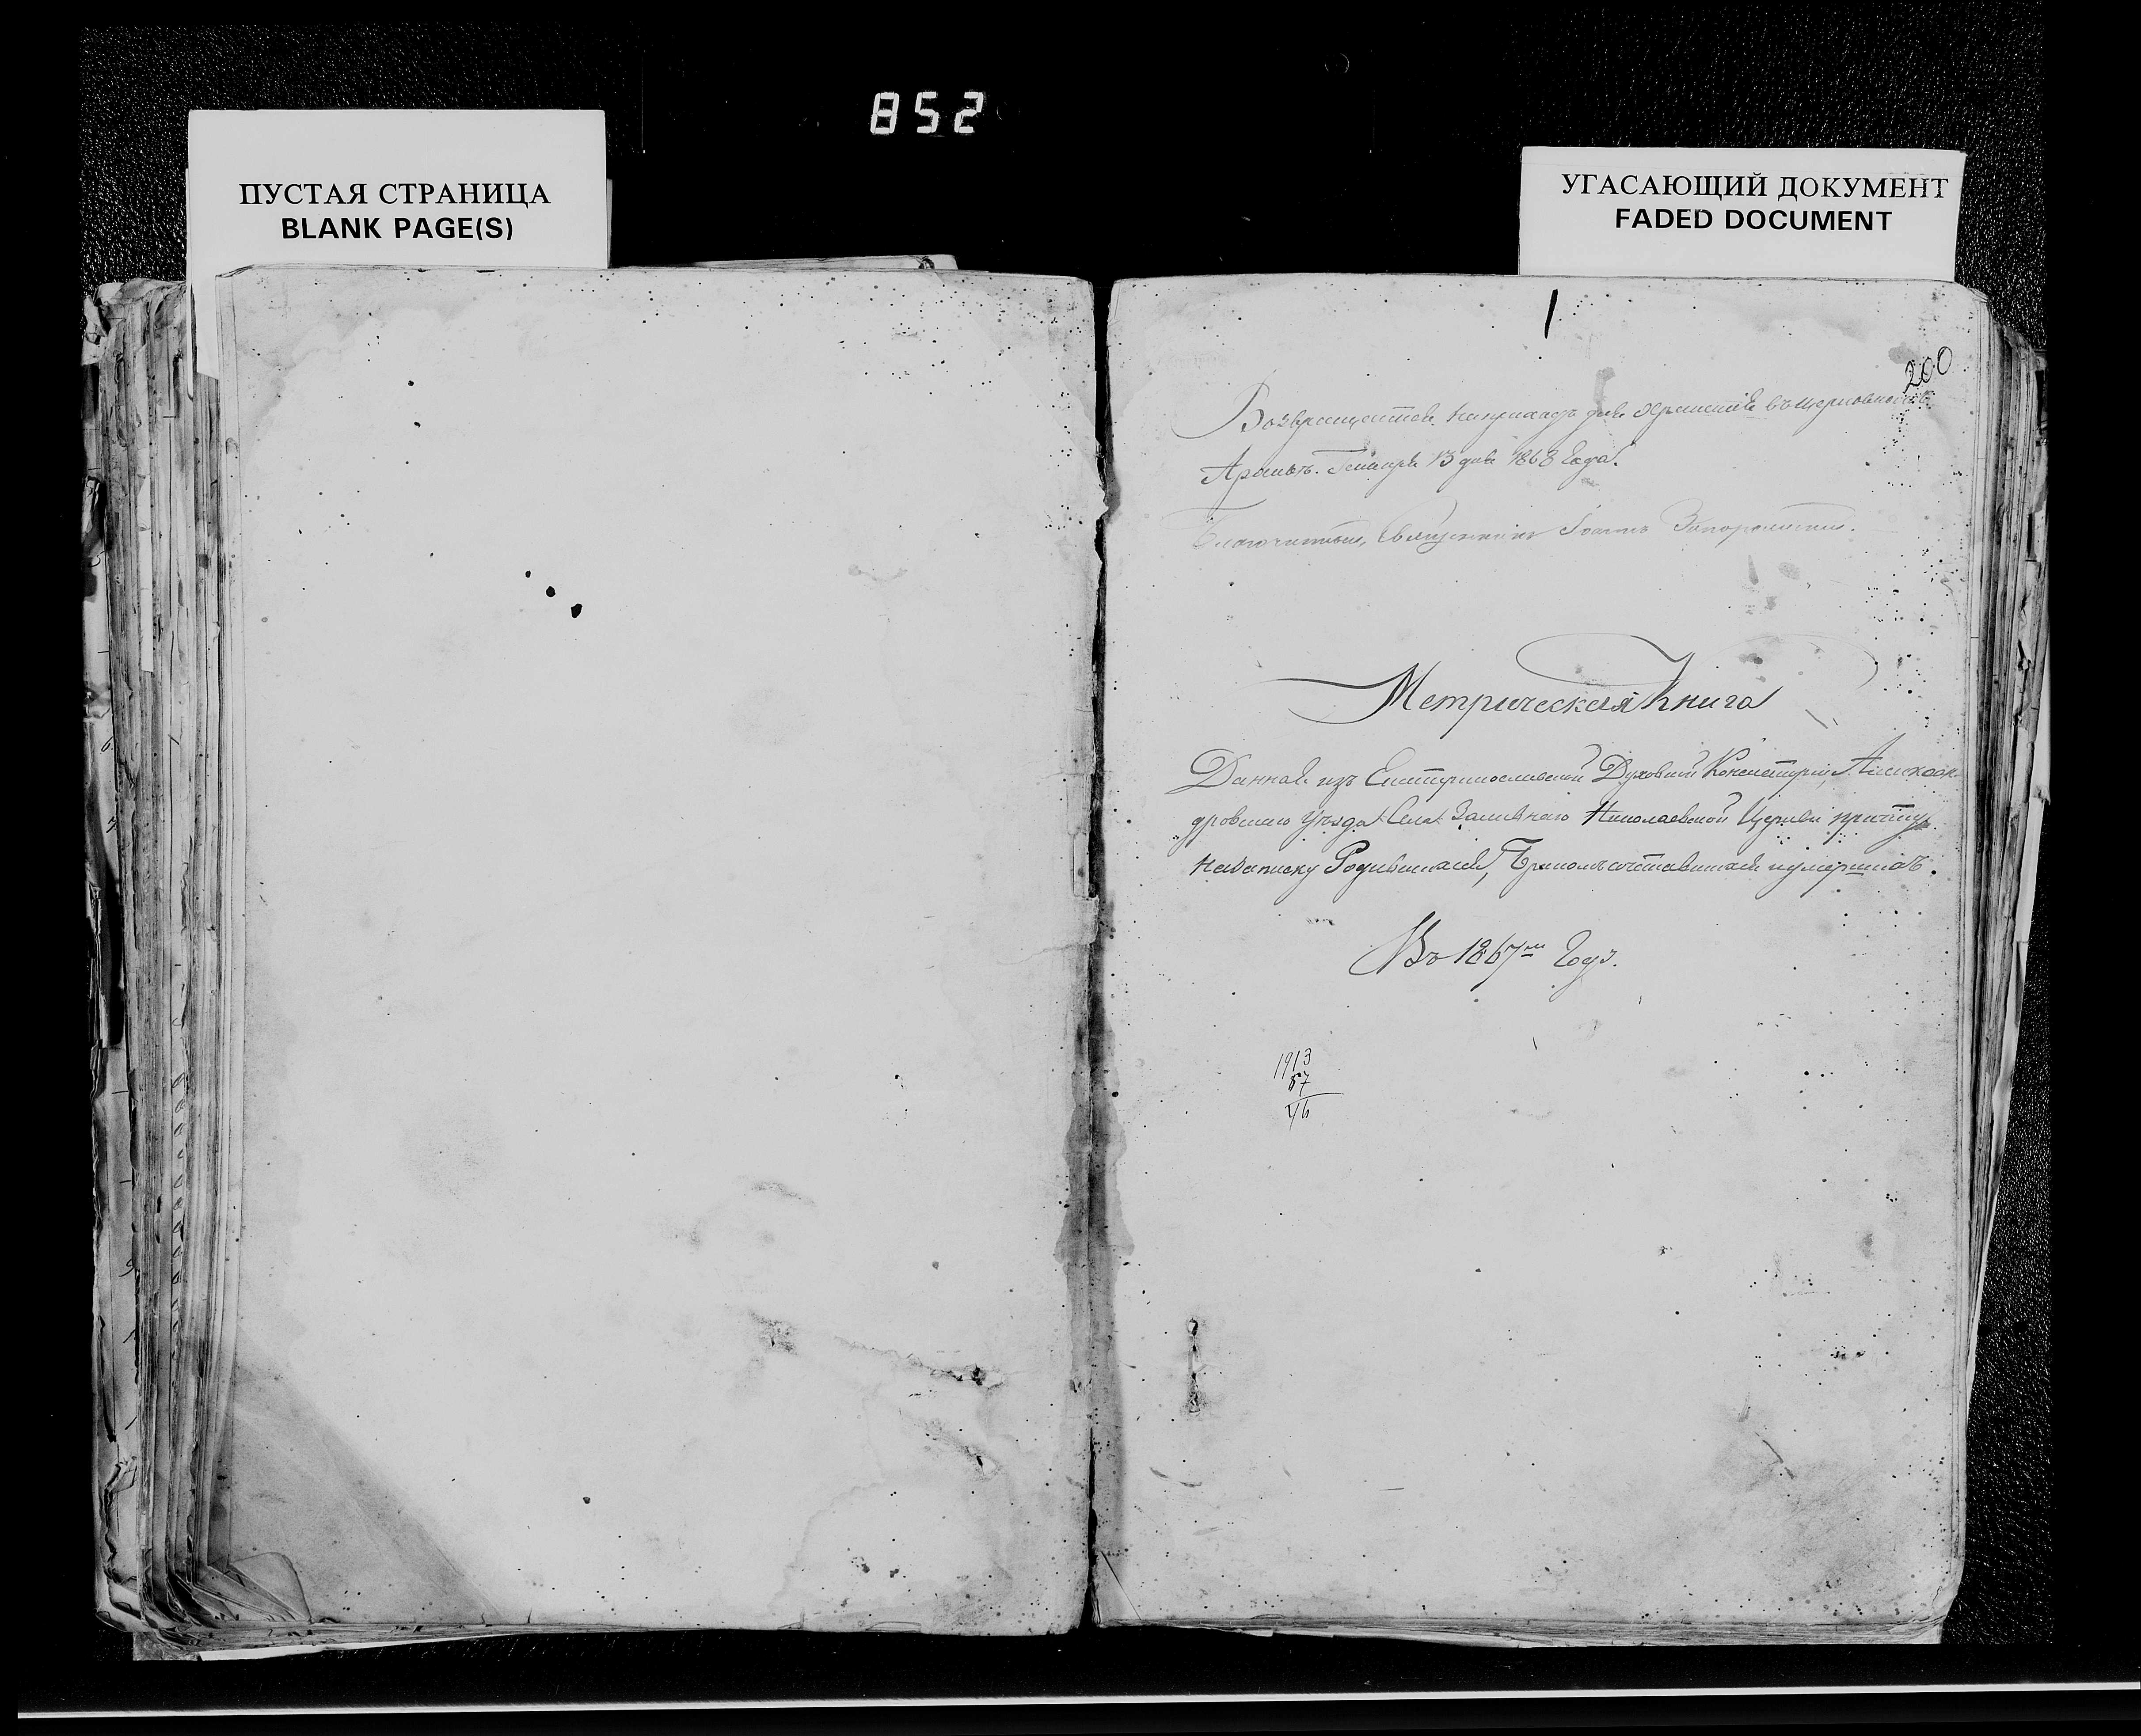 852
ПУСТАЯ СТРАНИЦА
BLANK PAGE(S)
УГАСАЮЩИЙ ДОКУМЕНТ
FADED DOCUMENT
200
Возвращается для храненія въ церковномъ
Архивѣ. Генваря 13 дня 1868 года.
Благочинный, Священникъ Іоаннъ
Метрическая Книга
Данная изъ Екатеринославской Духовной Консисторіи, Алексан
дровскаго уѣзда Села Заливнаго Николаевской Церкви причту
на записку Родившихся, Бракомъ сочетавшихся и умершихъ.
Въ 1867мъ Году.
1913
67
46